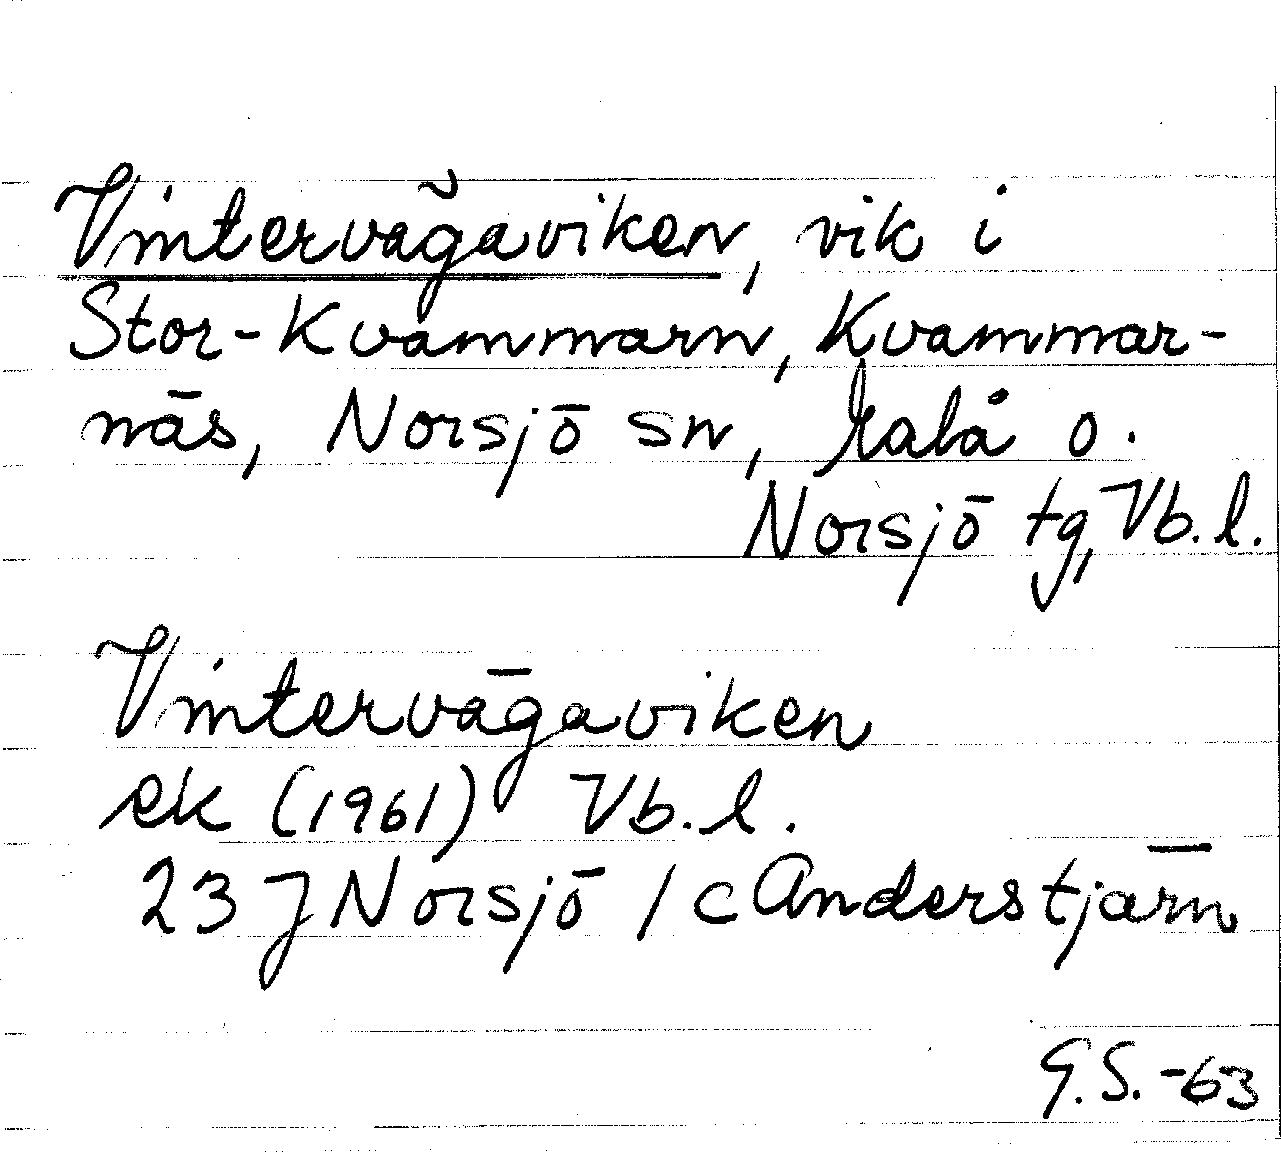 Vintervägaviken, vik i
Stor-Kvammarn, Kvammar-
näs, Norsjö sn, Malå o.
Norsjö tg, Vb. l.
Vintervägaviken
ek (1961) Vb. l.
23 J Norsjö / c Anderstjärn
G.S. -63